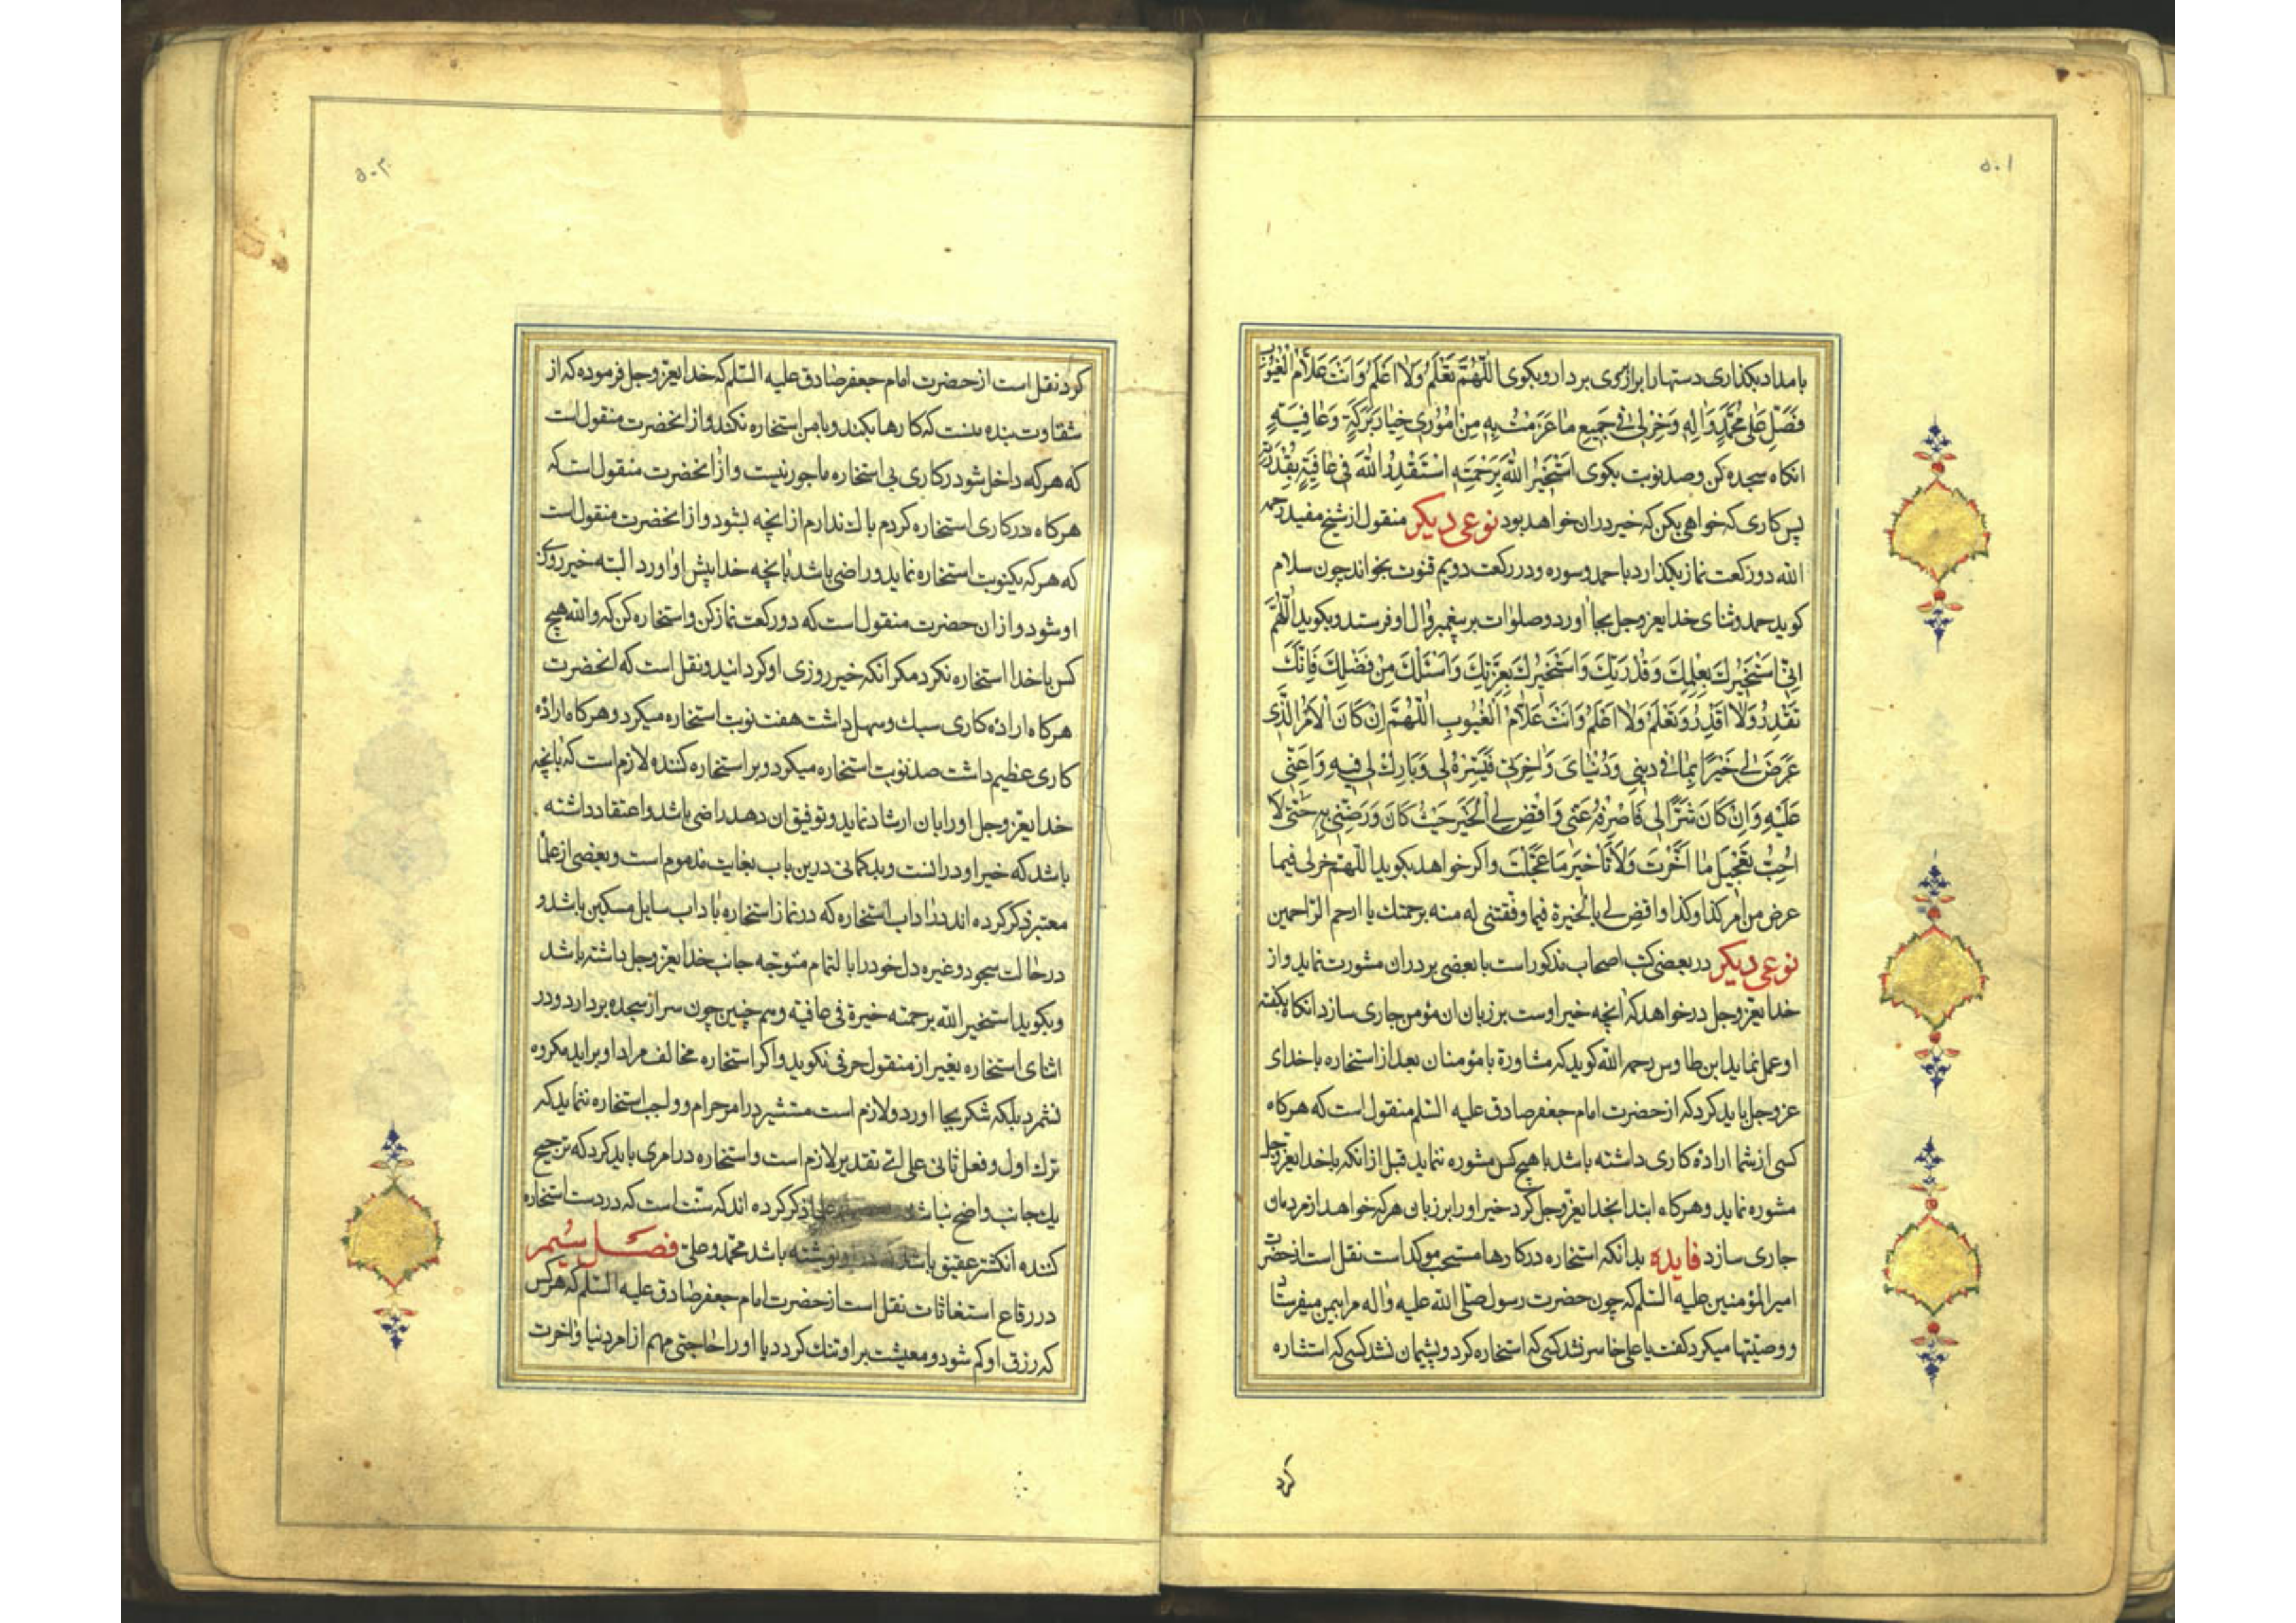 ۵۰۱
بامداد بکذاری دستها را برابر روی بردار و بکوی اللّٰهُمَّ تَعْلَمُ وَلٰا اَعْلَمُ وَاَنْتَ عَلّاٰمُ الْغُیُوبِ
فَصَلِّ عَلٰی مُحَمَّدٍ وَاٰلِهِ وَخِرْلی فی جَمیعِ ما عَزَمْتُ بِهِ مِنْ اُمُوری خِیارَ بَرَکَةٍ وَعٰافِیَةٍ
انکاه سجده کن و صد نوبت بکوی اَسْتَخیرُ اللّٰهَ بِرَحْمَتِهِ اَسْتَقْدِرُ اللّٰهَ فی عٰافِیَةٍ بِقُدْرَتِهِ
پس کاری که خواهی بکن که خیر دران خواهد بود نوعی دیکر منقول از شیخ مفید رحمه
الله دو رکعت نماز بکذارد با حمد و سوره و در رکعت دویم قنوت بخواند چون سلام
کوید حمد و ثنای خدایعزوجل بجا اورد و صلوات بر پیغمبر و ال او فرستد و بکوید اَللّٰهُمَّ
اِنّی اَسْتَخیرُكَ بِعِلْمِكَ وَقُدْرَتِكَ وَاَسْتَخیرُكَ بِعِزَّتِكَ وَاَسْئَلُكَ مِنْ فَضْلِكَ فَاِنَّكَ
تَقْدِرُ وَلٰا اَقْدِرُ وَتَعْلَمُ وَلٰا اَعْلَمُ وَاَنْتَ عَلّاٰمُ الْغُیُوبِ اَللّٰهُمَّ اِنْ کَانَ الْاَمْرُ الَّذی
عَرَضَ لی خَیْرًا لی فی دینی وَدُنْیٰایَ وَاٰخِرَتی فَیَسِّرْهُ لی وَبَارِكْ لی فیهِ وَاَعِنّی
عَلَیْهِ وَاِنْ کَانَ شَرًّا لی فَاصْرِفْهُ عَنّی وَاقْضِ لِی الْخَیْرَ حَیْثُ کَانَ وَرَضِّنی بِهِ حَتّٰی لَا
اُحِبُّ تَعْجیلَ مٰا اَخَّرْتَ وَلَا تَاْخیرَ مَا عَجَّلْتَ و اکر خواهد بکوید اللهم خر لی فیما
عرض من امر کذا و کذا واقض لی بالخیرة فیما وفقتنی له منه برحمتك یا ارحم الراحمین
نوعی دیکر در بعضی کتب اصحاب مذکور است با بعضی برادران مشورت نماید و از
خدایعزوجل درخواهد که انچه خیر اوست بر زبان ان مؤمن جاری سازد انکاه بکفته
او عمل نماید ابن طاوس رحمه الله کوید که مشاورة با مؤمنان بعد از استخاره با خدای
عزوجل باید کرد که از حضرت امام جعفر صادق علیه السّلم منقول است که هرکاه
کسی از شما ارادۀ کاری داشته باشد با هیچ کس مشوره ننماید قبل از انکه با خدایعزوجل
مشوره نماید و هرکاه ابتدا بخدایعزوجل کرد خیر او را بر زبان هر که خواهد از مردمان
جاری سازد فایده بدانکه استخاره در کارها مستحب موکد است نقل است از حضرت
امیرالمؤمنین علیه السّلم که چون حضرت رسول صلّی الله علیه واله مرا بیمن میفرستاد
و وصیّتها میکرد کفت یا علی خاسر نشد کسی که استخاره کرد و پشیمان نشد کسی که استشاره
کرد
۵۰۲
کرد نقل است از حضرت امام جعفر صادق علیه السّلم که خدایعزوجل فرموده که از
شقاوت بنده منست که کارها بکند و با من استخاره نکند و از انحضرت منقول است
که هر که داخل شود در کاری بی استخاره ماجور نیست و از انحضرت منقول است که
هرکاه در کاری استخاره کردم باك ندارم از انچه بشود و از انحضرت منقول است
که هر که یکنوبت استخاره نماید و راضی باشد بانچه خدا پیش او اورد البته خیر روزی
او شود و از ان حضرت منقول است که دو رکعت نماز کن و استخاره کن که والله هیچ
کس با خدا استخاره نکرد مکر انکه خیر روزی او کردانید و نقل است که انحضرت
هرکاه ارادۀ کاری سبك و سهل داشت هفت نوبت استخاره میکرد و هرکاه ارادۀ
کاری عظیم داشت صد نوبت استخاره میکرد و بر استخاره کننده لازم است که بانچه
خدایعزوجل او را بان ارشاد نماید و توفیق ان دهد راضی باشد و اعتقاد داشته
باشد که خیر او در انست و بدکمانی درین باب بغایت مذموم است و بعضی از علمآ
معتبر ذکر کرده اند در اداب استخاره که در نماز استخاره با داب سایل مسکین باشد و
در حالت سجود و غیره دل خود را بالتمام متوجه جانب خدایعزوجل داشته باشد
و بکوید استخیر الله برحمته خیرة فی عافیة و هم چنین چون سر از سجده بردارد و در
اثنای استخاره بغیر از منقول حرفی نکوید و اکر استخاره مخالف مراد او براید مکروه
نشمرد بلکه شکر بجا اورد و لازم است مستشیر در امر حرام و واجب استخاره ننماید که
ترك اول و فعل ثانی علی ائ تقدیر لازم است و استخاره در امری باید کرد که ترجیح
یك جانب واضح نباشد علما ذکر کرده اند که سنّت است که در دست استخاره
کننده انکشتر عقیق باشد نوشته باشد محمّد و علیّ فصل
در رقاع استغاثات نقل است از حضرت امام جعفر صادق علیه السّلم که هر کس
که رزق او کم شود و معیشت بر او تنك کردد یا او را حاجتی مهم از امر دنیا و اخرت